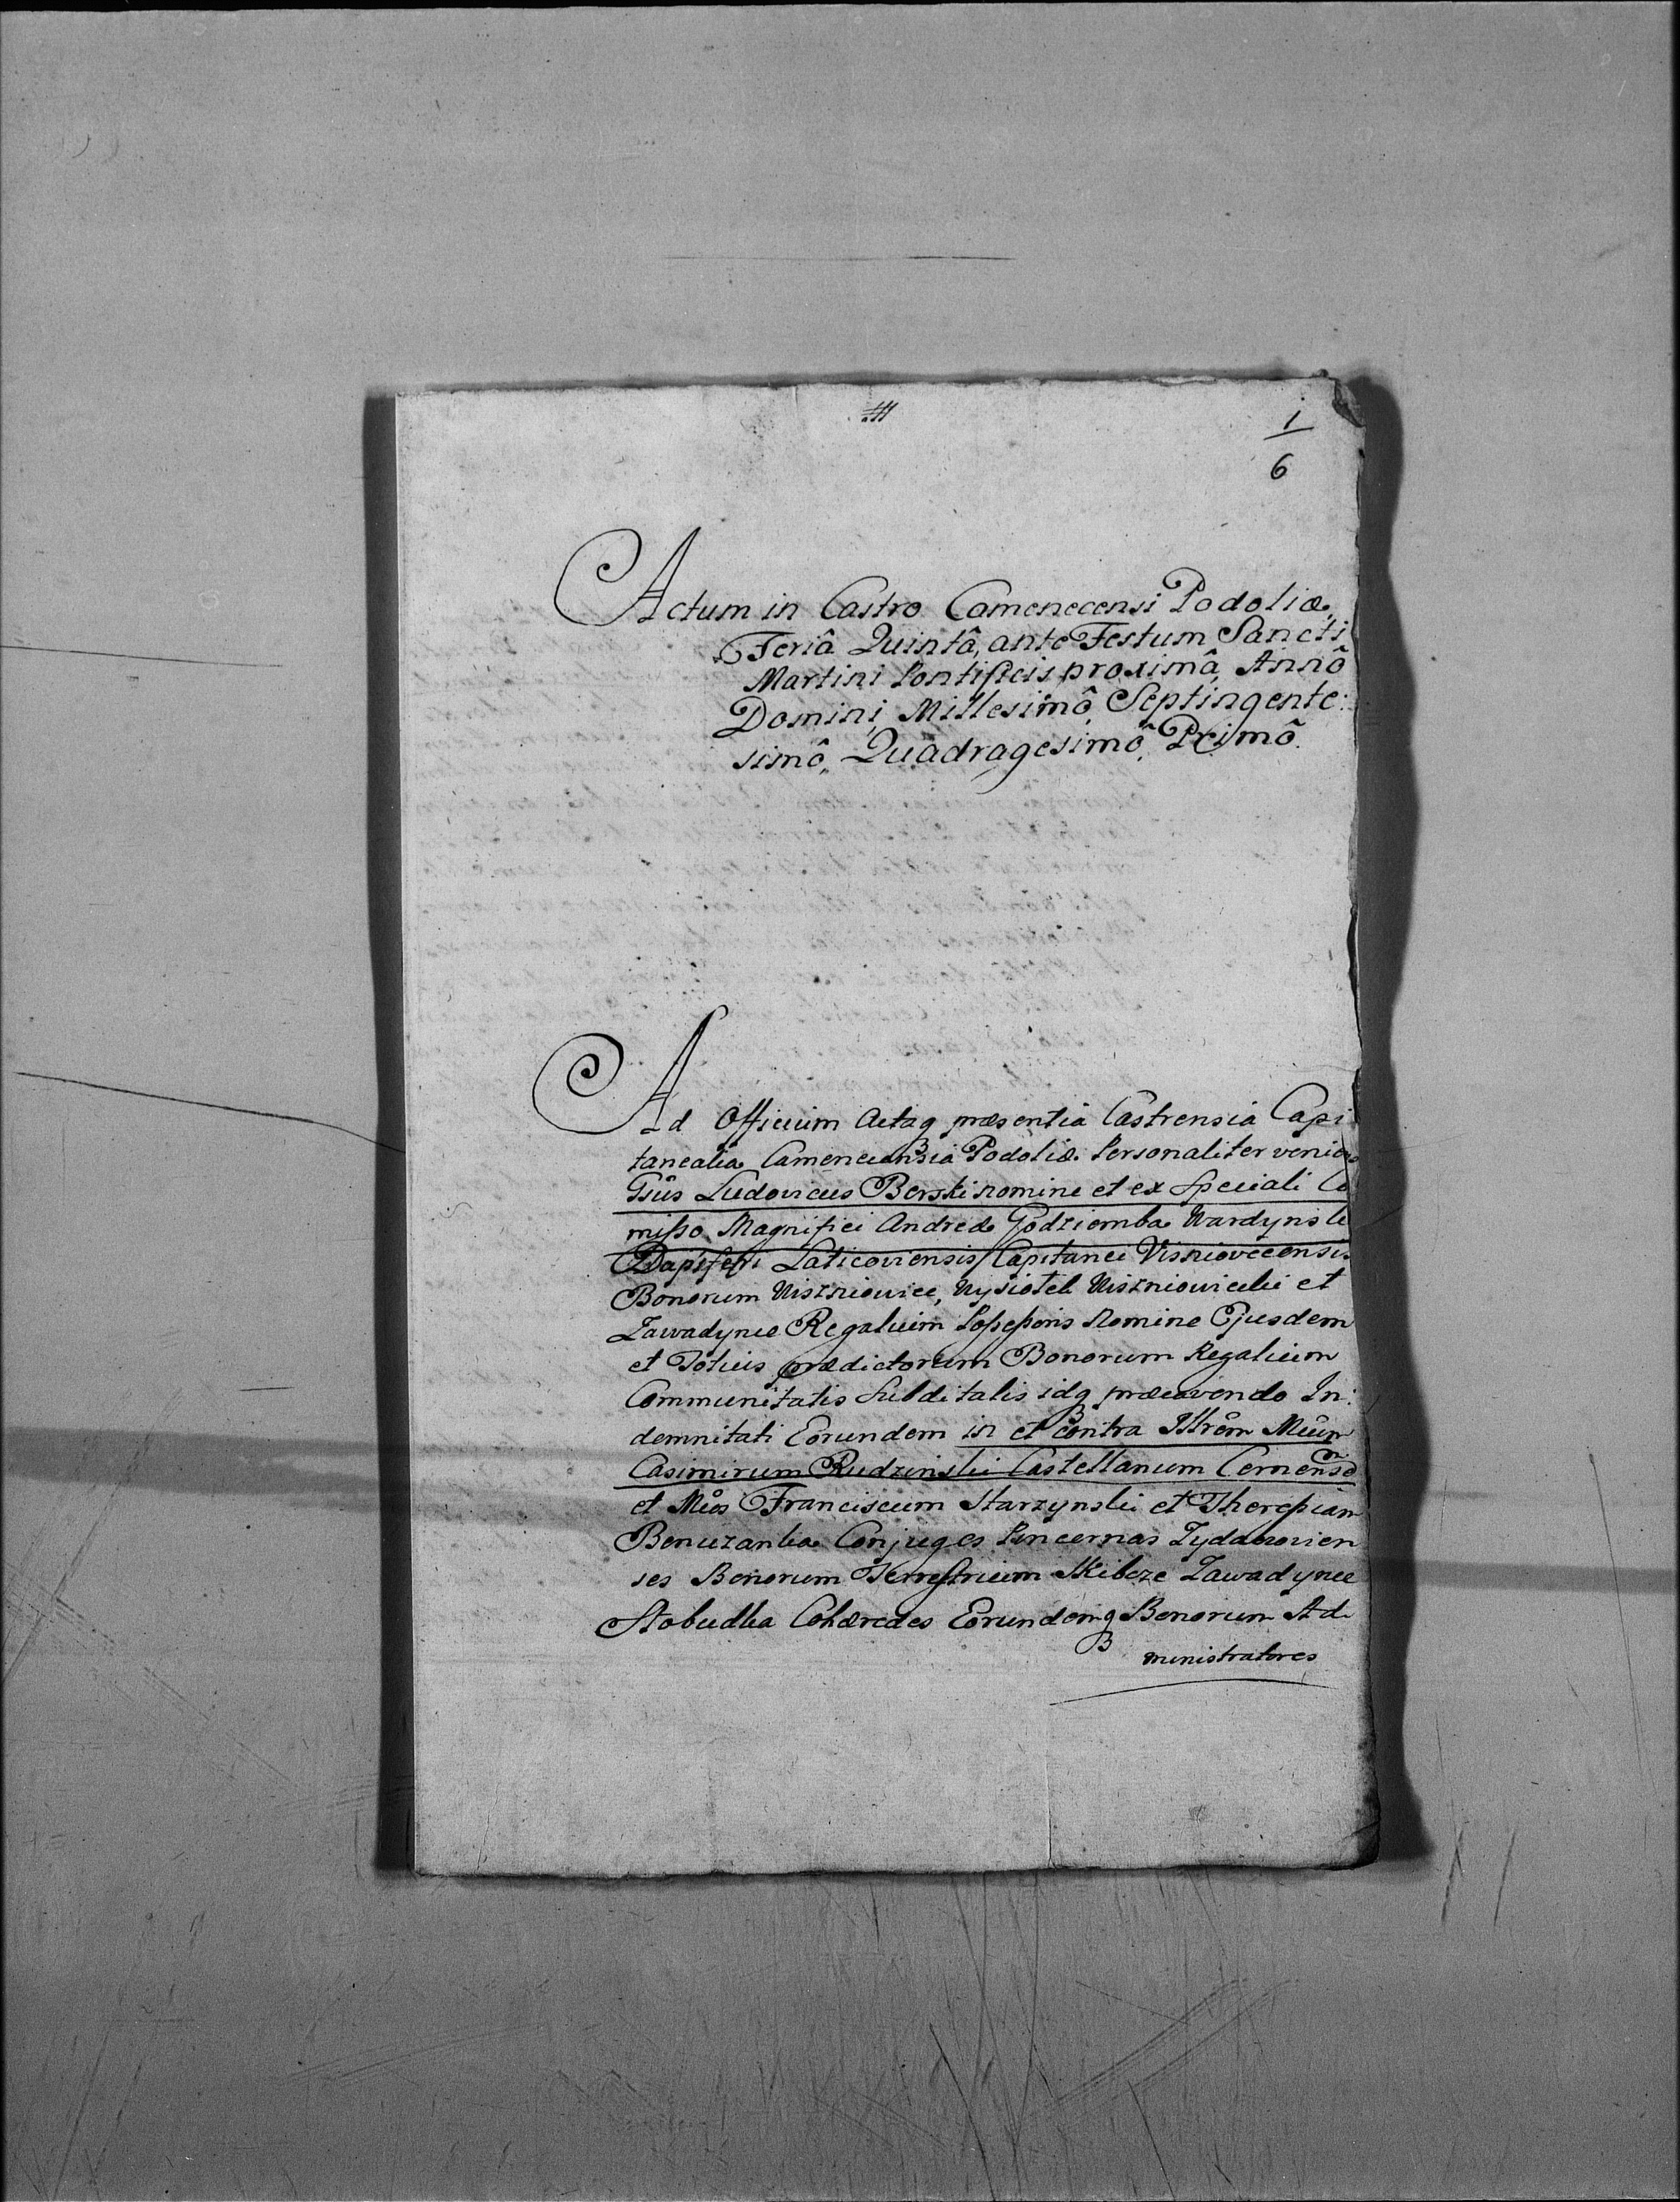 1
6
Actum in Castro Camenecensi Podoliæ,
Feriâ Quintâ, ante Festum Sancti
Martini Pontificis proximâ, Annô
Domini, Millesimô, Septingente:
simô, Quadragesimô, Primô.
Ad Officium Actaq præsentia Castrensia Capi
tanealia Camenecensia Podoliæ Personaliter veniens
Gsûs Ludovicus Berski nomine et ex Speciali Co
misso Magnifici Andreæ Godziemba Wardynski
Dapiferi Laticoviensis Capitanei Visniovecensis
Bonorum Wiszniowice, Wysiotek Wiszniowiecki et
Zawadynce Regalium Possessoris Nomine Ejusdem
et Totius prædictorum Bonorum Regalium
Communitatis Subditalis idq præcavendo In:
demnitati Eorundem in et contra Illrêm Mcûm
Casimirum Rudzinski Castellanum Cernensê
et Mcôs Franciscum Starzynski et Theressiam
Conjuges Pincernas Zydaczovien
ses Bonorum Terrestrium Skibcze Zawadynce
Stobudka Cohæredes Eorundemq Bonorum Ad
ministratores